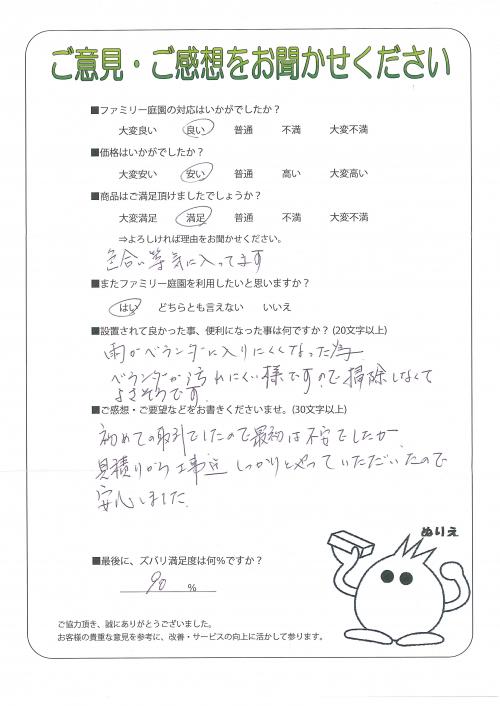 ご意見・ご感想をお聞かせください
■ファミリー庭園の対応はいかがでしたか？
大変良い 良い 普通 不満 大変不満
■価格はいかがでしたか？
大変安い 安い 普通 高い 大変高い
■商品はご満足頂けましたでしょうか？
大変満足 満足 普通 不満 大変不満
⇒よろしければ理由をお聞かせください。
色合い等気に入ってます
■またファミリー庭園を利用したいと思いますか？
はい どちらとも言えない いいえ
■設置されて良かった事、便利になった事は何ですか？(20文字以上)
雨がベランダーに入りにくくなった為
ベランダーが汚れにくい様ですので掃除しなくて
よさそうです
■ご感想・ご要望などをお書きくださいませ。(30文字以上)
初めての取引でしたので最初は不安でしたが
見積りから工事迄しっかりとやっていただいたので
安心しました
ぬりえ
■最後に、ズバリ満足度は何％ですか？
90 ％
ご協力頂き、誠にありがとうございました。
お客様の貴重な意見を参考に、改善・サービスの向上に活かして参ります。